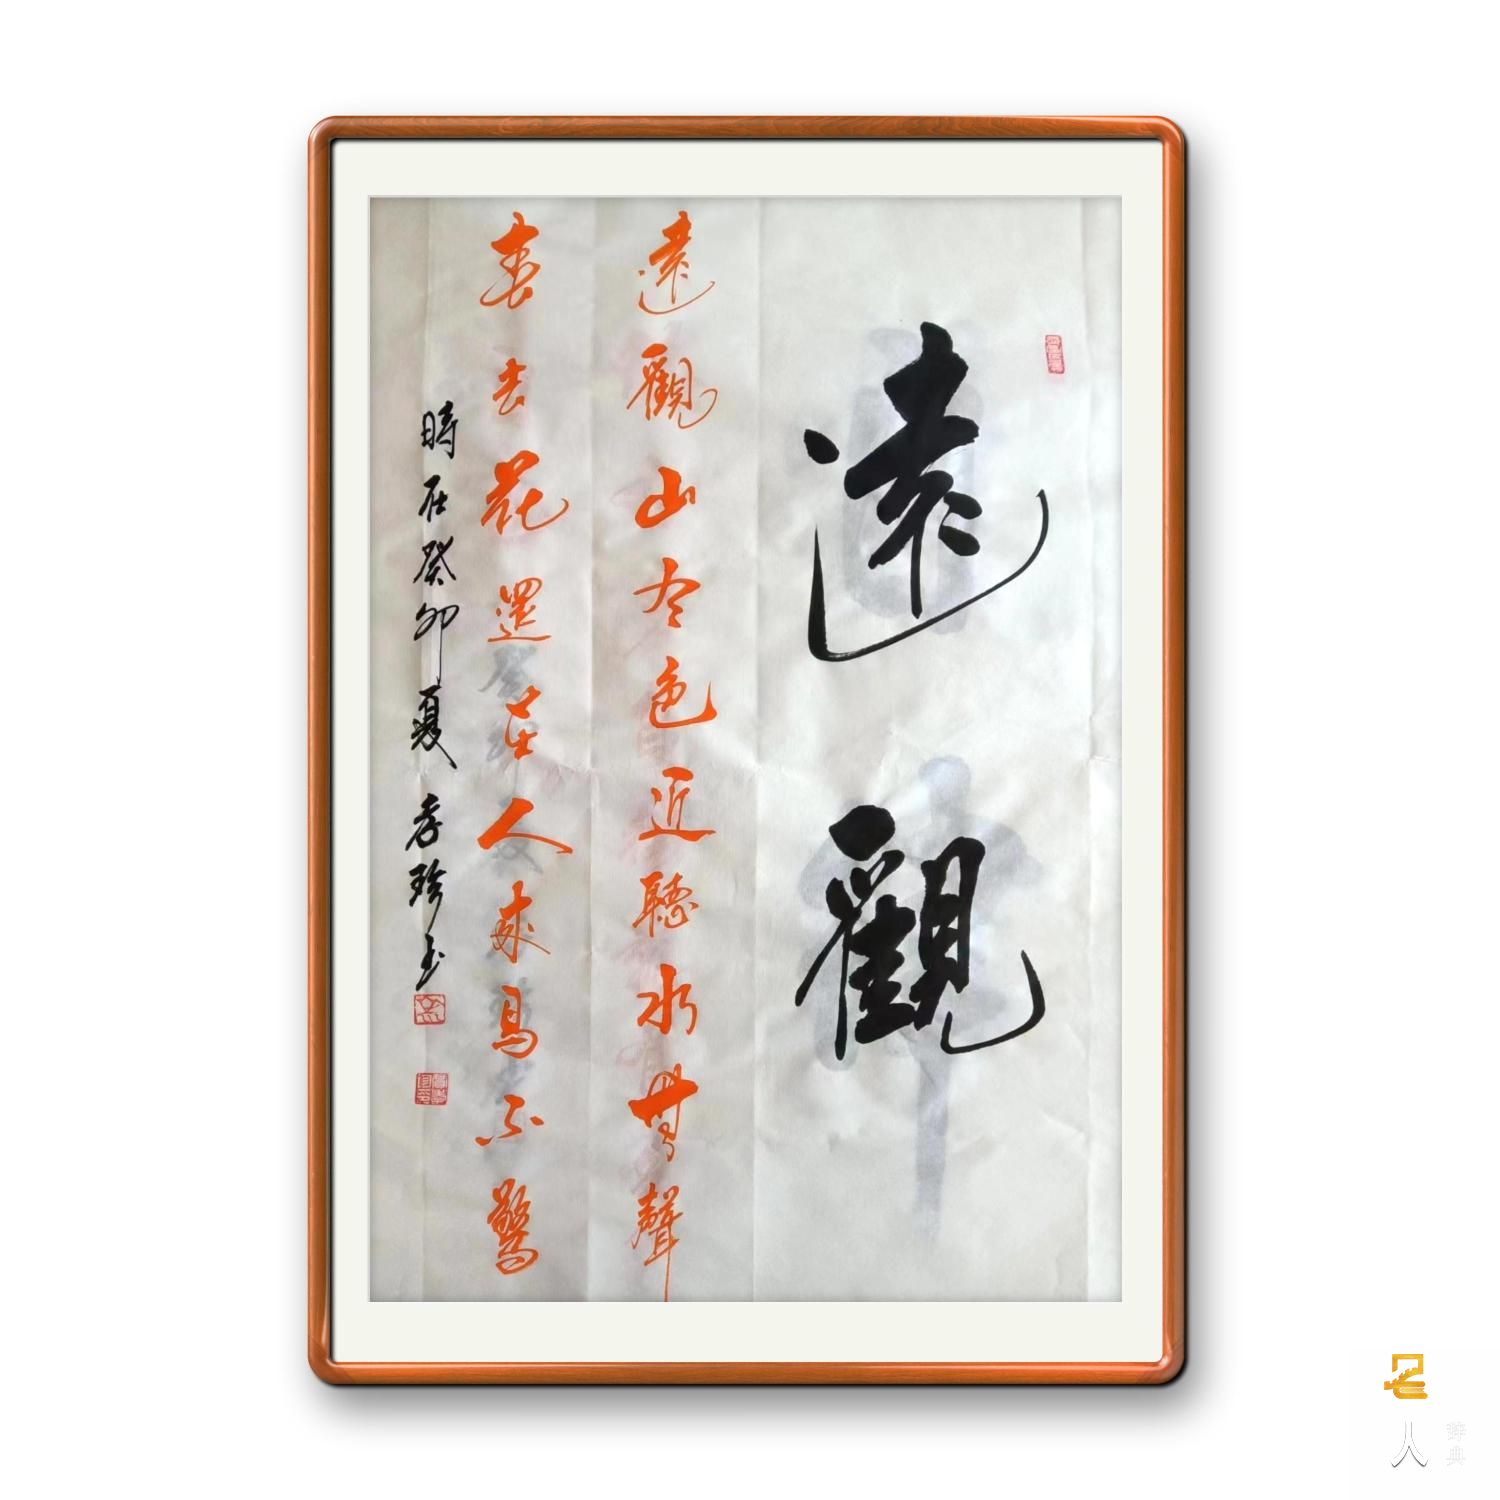 遠觀
遠觀山有色近聽水無聲
春去花還在人來鳥不驚
時在癸卯夏 孝珍書
名人辞典